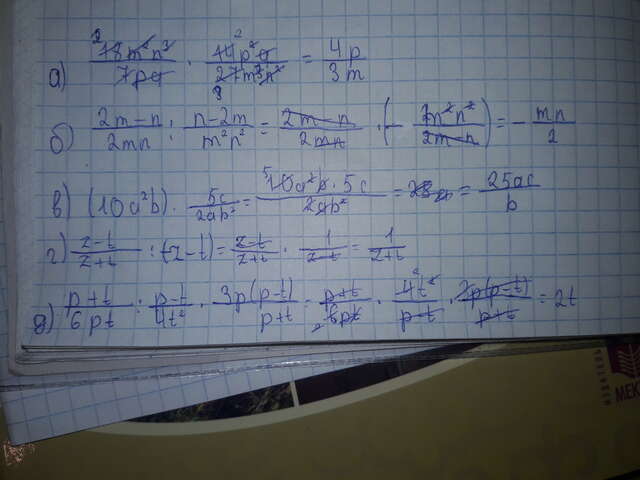 а) 18m²n³/7pq · 14p²q/27m³n² = 4p/3m
б) 2m-n/2mn : n-2m/m²n² = 2m-n/2mn · (- m²n²/2m-n) = - mn/2
в) (10a²b) · 5c/2ab² = 10a²b·5c/2ab² = 25ac/b
г) z-t/z+t : (z-t) = z-t/z+t · 1/z-t = 1/z+t
д) p+t/6pt : p-t/4t² · 3p(p-t)/p+t = p+t/6pt · 4t²/p-t · 3p(p-t)/p+t = 2t
МЕК